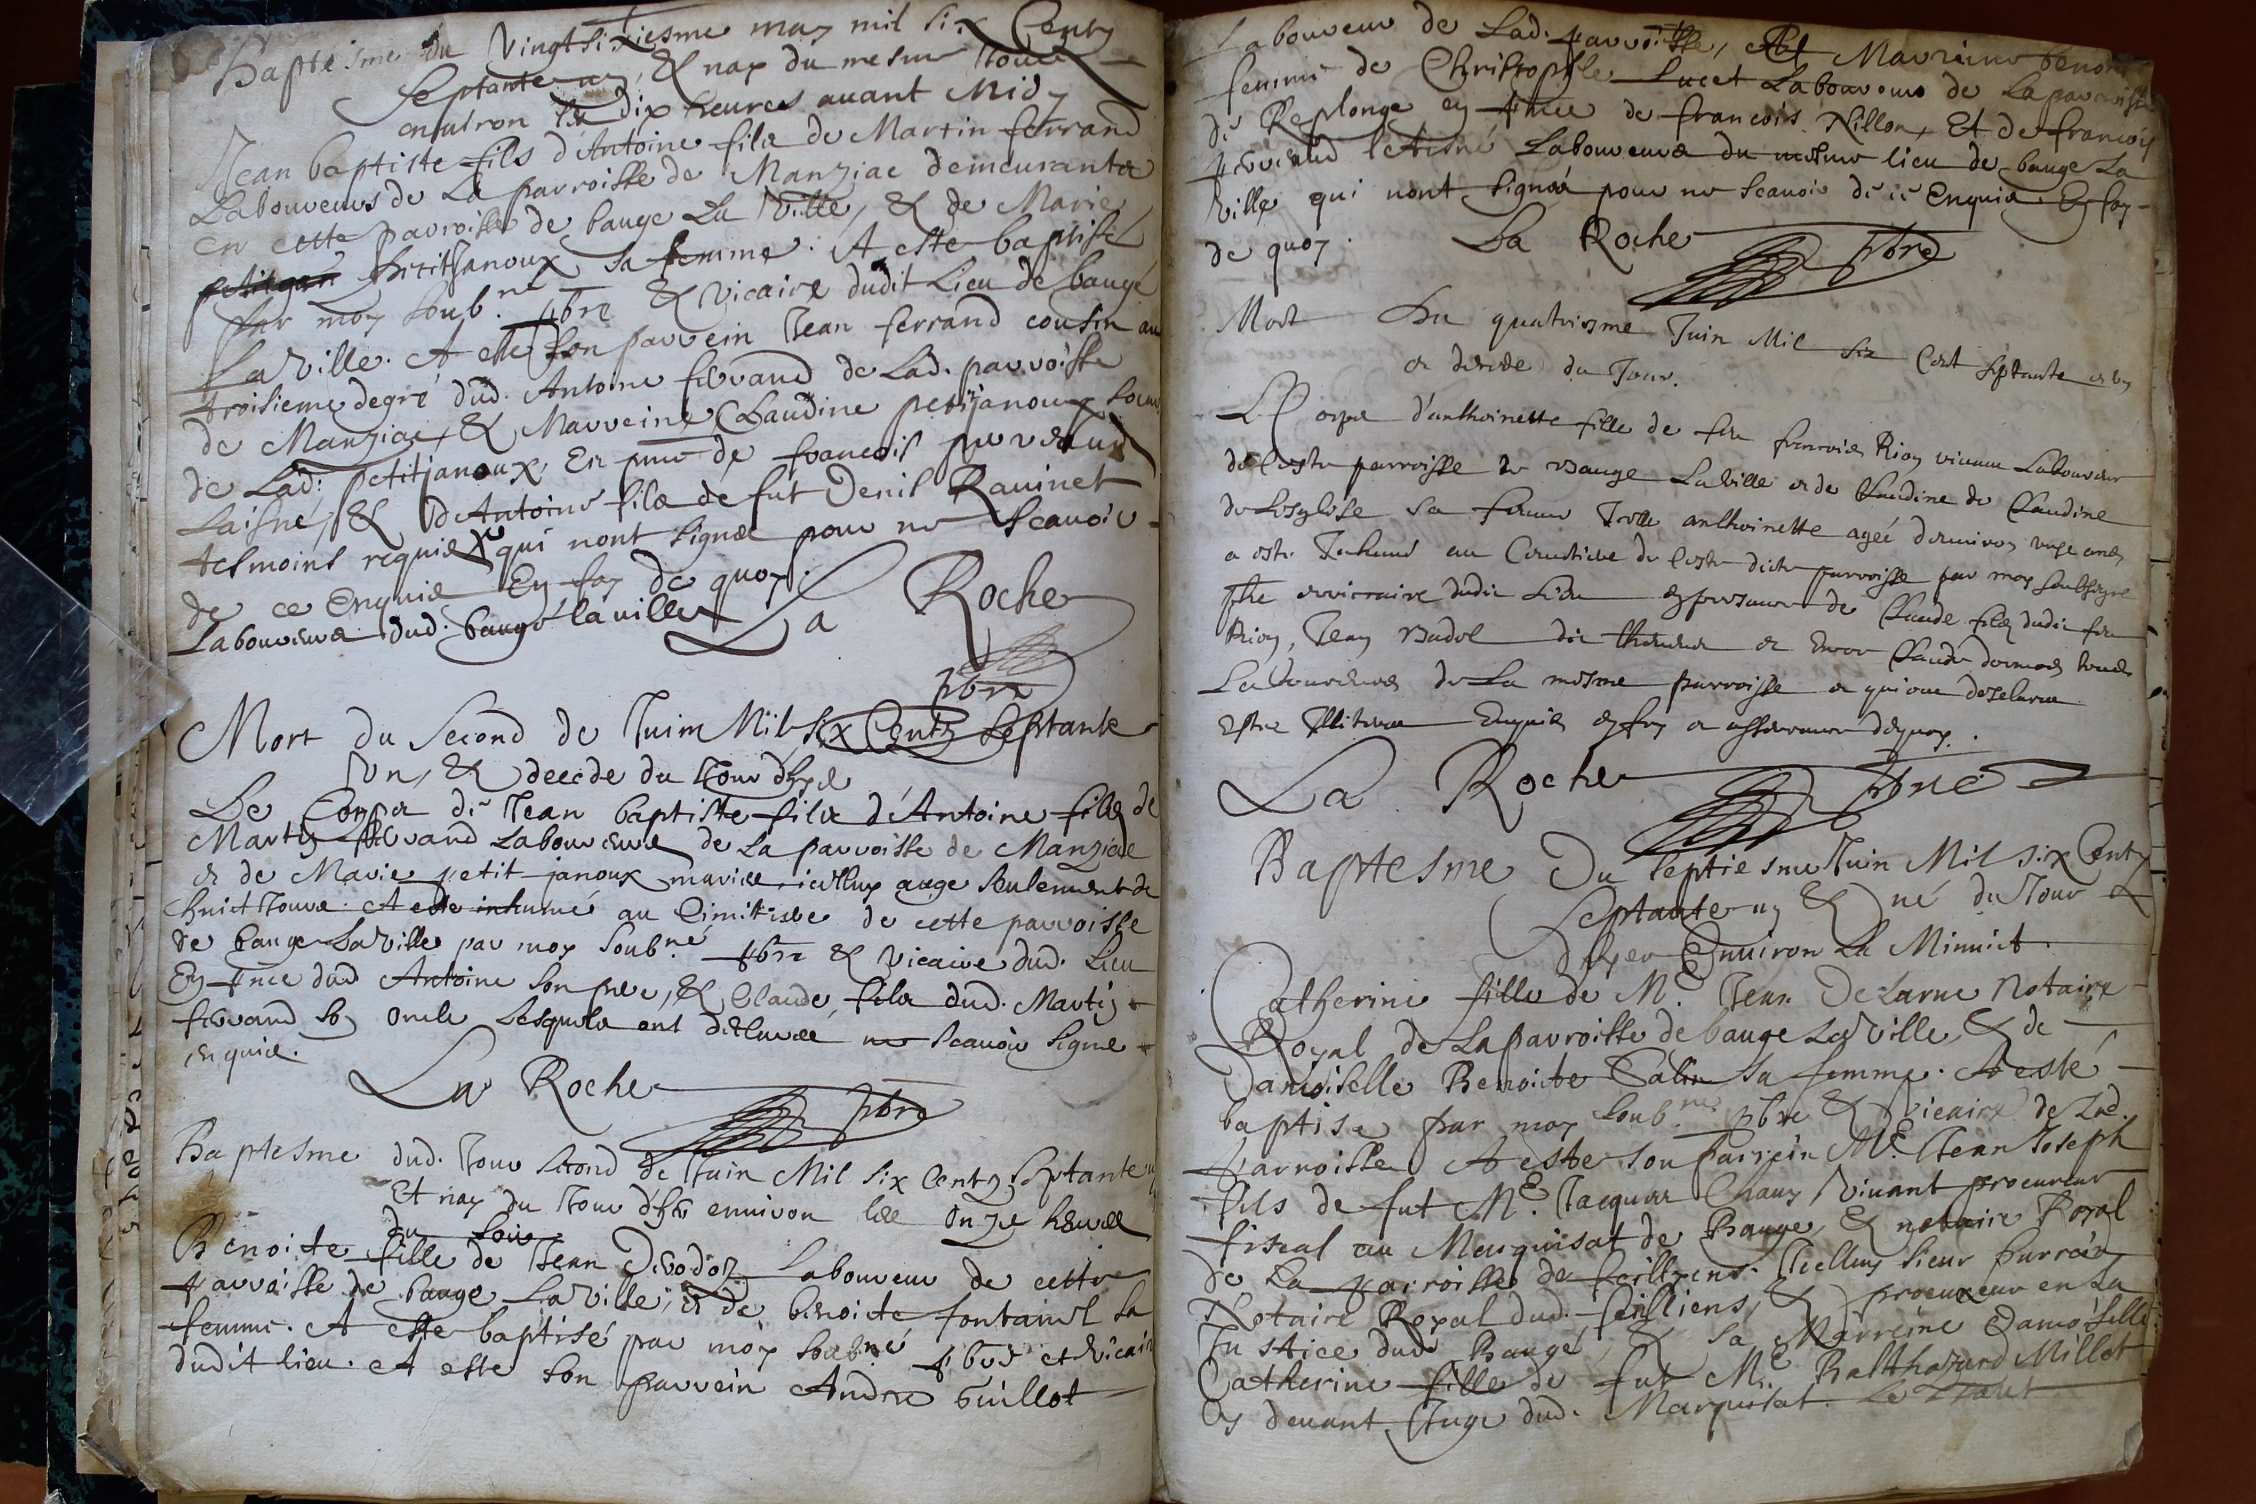 Baptesme du Vingt sixiesme may mil six Centz
septante un, & nay du mesme Jour
enuiron les dix heures auant Midy
Jean baptiste fils d'Antoine filz de Martin ferrand
Laboureurs de La parroisse de Manziac demeurantz
en cette parroisse de bauge La Ville, & de Marie
petitjanoux sa femme. A esté baptisé
par moy soub.né pbre & Vicaire dudit Lieu de baugé
La Ville. A esté son parrein Jean ferrand cousin au
troisieme degré dud. Antoine ferrand de Lad. parroisse
de Manziac, & Marreine Claudine petitjanoux soeur
de Lad. petitjanoux, En pnce de francois perraud
Laisné, & d'Antoine filz de fut Denis Rauinet
tesmoins requis qui nont signez pour ne scauoir
de ce Enquis En foy de quoy.
Laboureurs dud. baugé la ville
La Roche
pbre
Mort du Second de Juin Mil six Centz septante
Un, & decede du Jour d'hyer
Le Corps de Jean baptiste filz d'Antoine fillz de
Martin ferrand Laboureurs de La parroisse de Manziac
et de Marie petit janoux mariez icelluy aagé seulement de
huict Jours. A esté inhumé au Cimitiere de cette parroisse
de bauge La Ville par moy soub.né pbre & Vicaire dud. Lieu
En pnce dud Antoine son pere, & Claude filz dud. Martin
ferrand son oncle Lesquelz ont declaré ne scauoir signer
enquis.
La Roche pbre
Baptesme dud. Jour second de Juin Mil six Centz septante un
Et nay du Jour d'hier enuiron les onze heures
du soir
Benoite fille de Jean Laboureur de cette
parroisse de bauge La Ville, et de benoite fontaine sa
femme. A esté baptisé par moy soub.né pbre et Vicaire
dudit lieu. A esté son parrein Andre Guillot
Laboureur de Lad. parroisse, Et Marreine benoite
femme de Christophle Lucet Laboureur de La parroisse
de Replonge en pnce de francois Nillon, Et de francois
perraud l'Aisné Laboureurs du mesme lieu de bauge La
Ville qui nont signez pour ne scauoir de ce Enquis. En foy
de quoy. La Roche pbre
Mort Du quatriesme Juin Mil six Cent septante et un
et decede du Jour.
Le Corps d'anthoinette fille de feu francois Rion viuant Laboureur
de Ceste parroisse de Bauge La Ville et de Claudine de
de Lesglise sa femme Icelle anthoinette ageé denuiron onze ans
a esté Inhumé au Cimetiere de Ceste dicte parroisse par moy soubsigné
pbre et vicaire dudit Lieu en presence de Claude filz dudit feu
Rion, Jean Badol dit et Claude tous
Laboureurs de La mesme parroisse et qui ont desclaré
estre Illiterez Enquis en foy et asseurance dequoy.
La Roche pbre
Baptesme Du septiesme Juin Mil six Centz
septante un & né du Jour
d'hyer Enuiron La Minuict.
Catherine fille de M.e Jean Delarue Notaire
Royal de La parroisse de bauge La Ville, & de
Damoiselle Benoicte Salin sa femme. A esté
baptisé par moy soub.né pbre & Vicaire de Lad.
parroisse A esté son parrein M.e Jean Joseph
fils de fut M.e Jacques Chauy Viuant procureur
fiscal au Marquisat de Bauge, & notaire Royal
de La parroisse de feilliens. Icelluy sieur parrein
Notaire Royal dud. feilliens, & procureur en La
Justice dud. Baugé, & sa Marreine Damoiselle
Catherine fille de fut M.e Balthazard Millot
Cy deuant Juge dud. Marquisat. Le